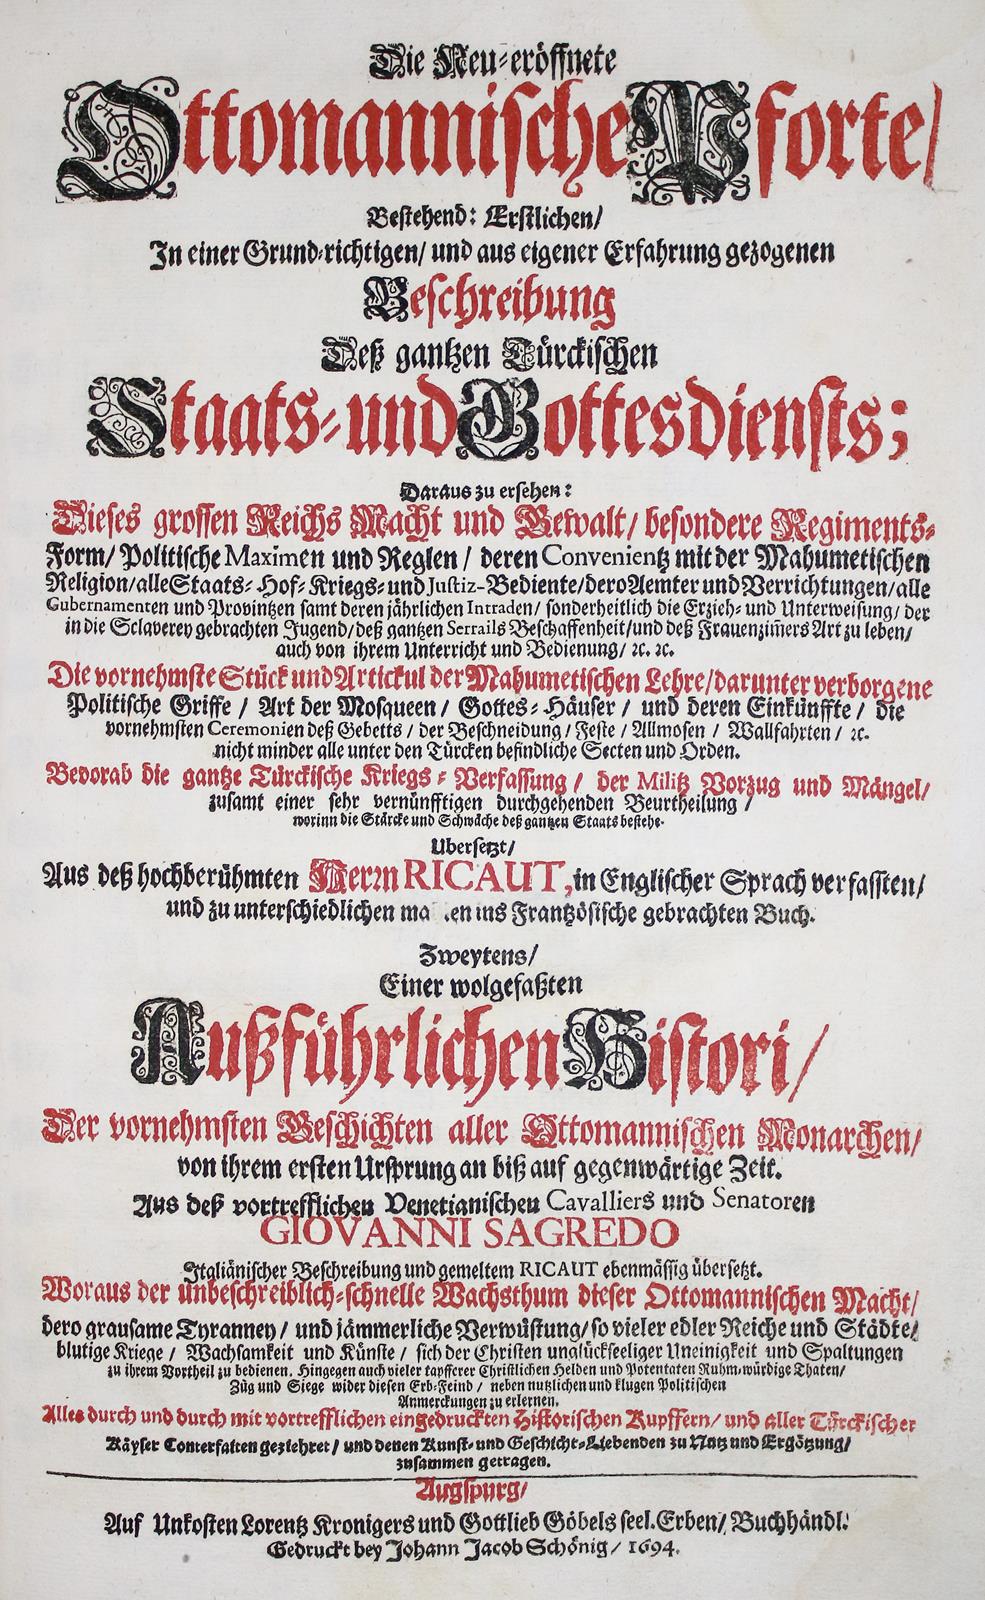 Die Neu-eröffnete
Ottomannische Pforte/
Bestehend: Erstlichen/
In einer Grund-richtigen/ und aus eigener Erfahrung gezogenen
Beschreibung
Deß gantzen Türckischen
Staats- und Gottesdiensts;
Daraus zu ersehen:
Dieses grossen Reichs Macht und Gewalt/ besondere Regiments-
Form/ Politische Maximen und Reglen/ deren Convenientz mit der Mahumetischen
Religion/ alle Staats- Hof- Kriegs- und Justiz-Bediente/ dero Aemter und Verrichtungen/ alle
Gubernamenten und Provintzen samt deren jährlichen Intraden/ sonderheitlich die Erzieh- und Unterweisung/ der
in die Sclaverey gebrachten Jugend/ deß gantzen Serrails Beschaffenheit/ und deß Frauenzim̃ers Art zu leben/
auch von ihrem Unterricht und Bedienung/ ꝛc. ꝛc.
Die vornehmste Stück und Artickul der Mahumetischen Lehre/ darunter verborgene
Politische Griffe/ Art der Mosqueen/ Gottes-Häuser/ und deren Einkünffte/ die
vornehmsten Ceremonien deß Gebetts/ der Beschneidung/ Feste/ Allmosen/ Wallfahrten/ ꝛc.
nicht minder alle unter den Türcken befindliche Secten und Orden.
Bevorab die gantze Türckische Kriegs-Verfassung/ der Militz Vorzug und Mängel/
zusamt einer sehr vernünfftigen durchgehenden Beurtheilung/
worinn die Stärcke und Schwäche deß gantzen Staats bestehe.
Übersetzt/
Aus deß hochberühmten Herrn RICAUT, in Englischer Sprach verfassten/
und zu unterschiedlichen ma en ins Frantzösische gebrachten Buch.
Zweytens/
Einer wolgefaßten
Außführlichen Histori/
Der vornehmsten Geschichten aller Ottomannischen Monarchen/
von ihrem ersten Ursprung an biß auf gegenwärtige Zeit.
Aus deß vortrefflichen Venetianischen Cavalliers und Senatoren
GIOVANNI SAGREDO
Italiänischer Beschreibung und gemeltem RICAUT ebenmässig übersetzt.
Woraus der unbeschreiblich-schnelle Wachsthum dieser Ottomannischen Macht/
dero grausame Tyranney/ und jämmerliche Verwüstung/ so vieler edler Reiche und Städte/
blutige Kriege/ Wachsamkeit und Künste/ sich der Christen unglückseeliger Uneinigkeit und Spaltungen
zu ihrem Vortheil zu bedienen. Hingegen auch vieler tapfferer Christlichen Helden und Potentaten Ruhm-würdige Thaten/
Züg und Siege wider diesen Erb-Feind/ neben nutzlichen und klugen Politischen
Anmerckungen zu erlernen.
Alles durch und durch mit vortrefflichen eingedruckten Historischen Kupffern/ und aller Türckischer
Käyser Conterfaiten geziehret/ und denen Kunst- und Geschicht-Liebenden zu Nutz und Ergötzung/
zusammen getragen.
Augspurg/
Auf Unkosten Lorentz Kronigers und Gottlieb Göbels seel. Erben/ Buchhändl.
Gedruckt bey Johann Jacob Schönig/ 1694.